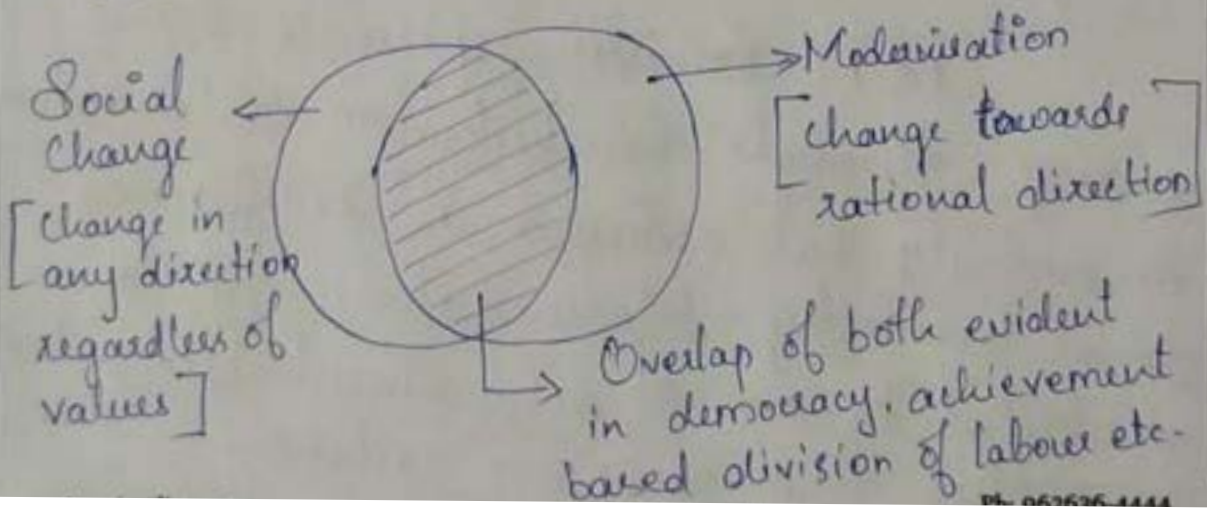 Social
Change
[Change in
any direction
regardless of
values]
Modernisation
[Change towards
rational direction]
Overlap of both evident
in democracy, achievement
based division of labour etc.